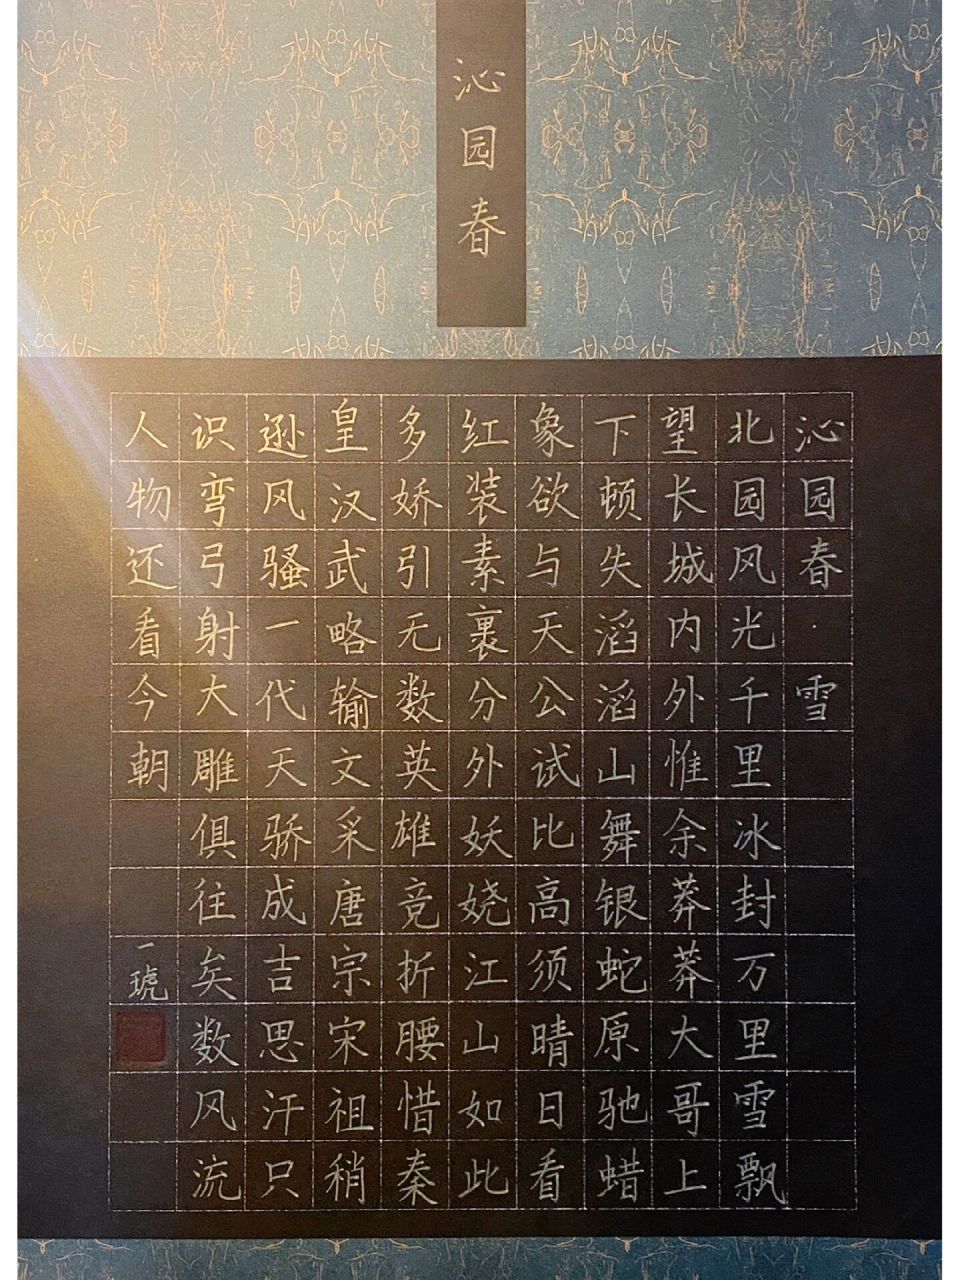 沁园春
沁园春·雪
北园风光千里冰封万里雪飘
望长城内外惟余莽莽大哥上
下顿失滔滔山舞银蛇原驰蜡
象欲与天公试比高须晴日看
红装素裹分外妖娆江山如此
多娇引无数英雄竞折腰惜秦
皇汉武略输文采唐宗宋祖稍
逊风骚一代天骄成吉思汗只
识弯弓射大雕俱往矣数风流
人物还看今朝
一琥